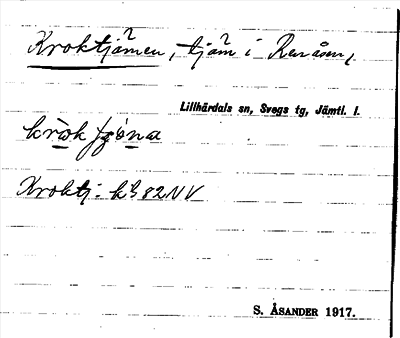 Kroktjämen, tjäm i Renåsen,
Lillhärdals sn, Svegs tg, Jämtl. l.
Kroktj. kb 82 NV
S. ÅSANDER 1917.